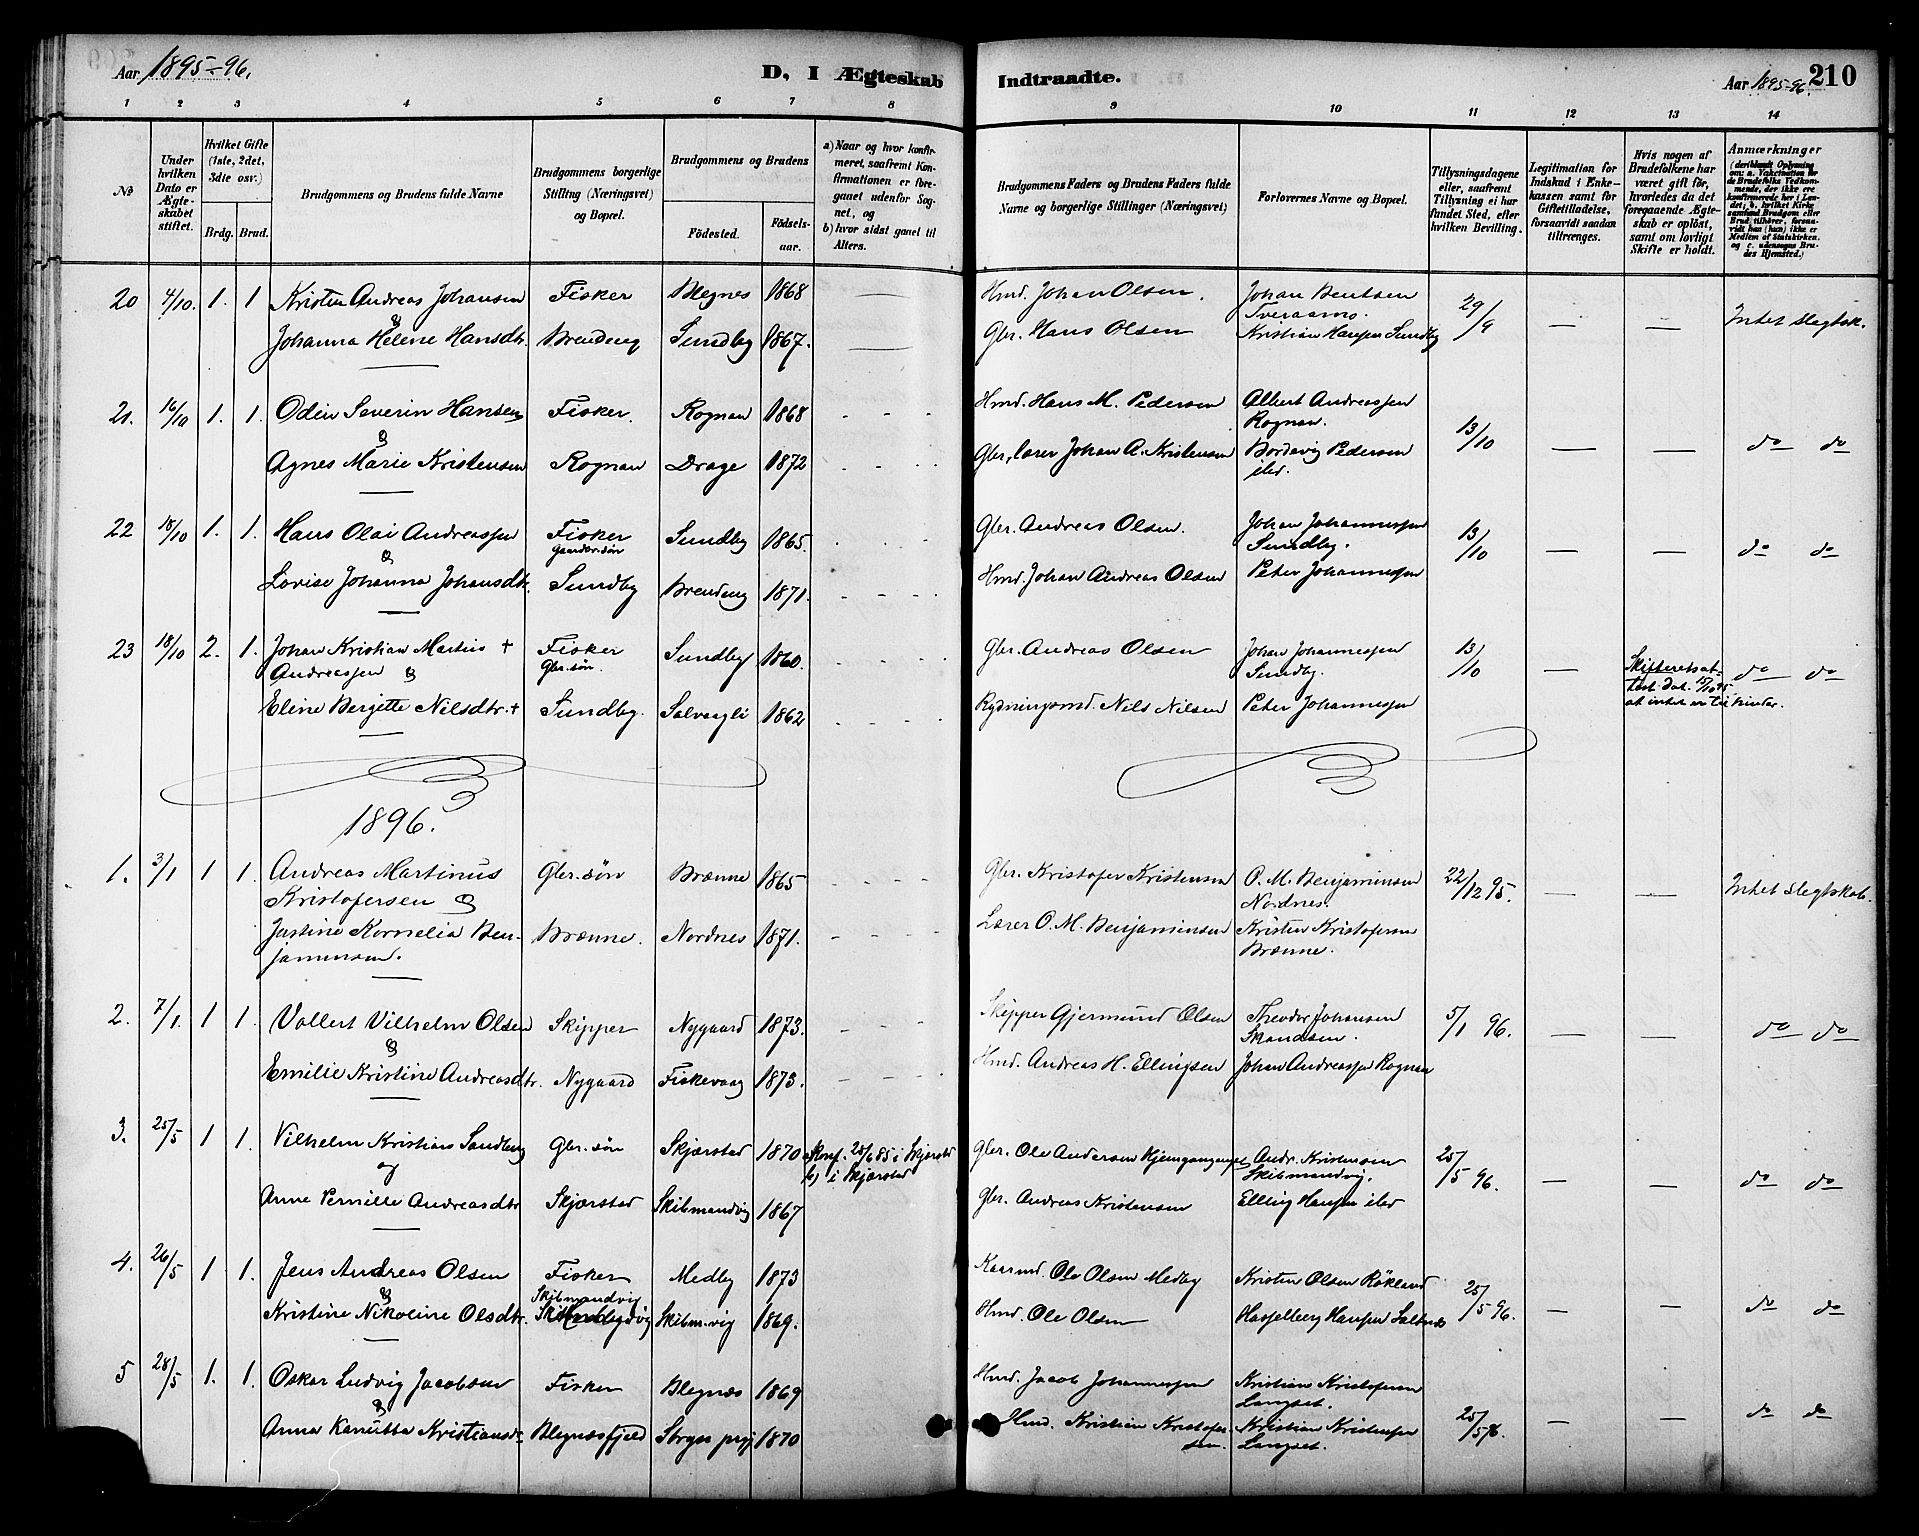 Aar 1895-96.
D, I Ægteskab Indtraadte.
Aar 1895-96. 210
1 2 3 4 5 6 7 8 9 10 11 12 13 14
No
Under hvilken Dato er Ægteskabet stiftet.
Hvilket Gifte (1ste, 2det, 3die osv.)
Brdg. Brud.
Brudgommens og Brudens fulde Navne
Brudgommens borgerlige Stilling (Næringsvei) og Bopæl.
Brudgommens og Brudens
Födested. Födselsaar.
a) Naar og hvor konfirmeret, saafremt Konfirmationen er foregaaet udenfor Sognet, og
b) hvor sidst gaaet til Alters.
Brudgommens Faders og Brudens Faders fulde Navne og borgerlige Stillinger (Næringsvei)
Forlovernes Navne og Bopæl.
Tillysningsdagene eller, saafremt Tillysning ei har fundet Sted, efter hvilken Bevilling.
Legitimation for Indskud i Enkekassen samt for Giftetilladelse, forsaavidt saadan tiltrænges.
Hvis nogen af Brudefolkene har været gift för, hvorledes da det foregaaende Ægteskab er oplöst, samt om lovligt Skifte er holdt.
Anmærkninger (deriblandt Oplysning om: a. Vakcination for de Brudefolks Vedkommende, der ikke ere konfirmerede her i Landet, b. hvilket Kirkesamfund Brudgom eller Brud tilhörer, forsaavidt han (hun) ikke er Medlem af Statskirken, og c. udensogns Brudes Hjemsted.)
20 4/10. 1. 1 Kristen Andreas Johansen Fisker Blegnes 1868 — Hmd. Johan Olsen. Johan Bentsen Tveraamo. 29/9 — — Intet slegtsk.
&
Johanna Helene Hansdtr. Brendeng Sundby 1867. — Gbr. Hans Olsen Kristian Hansen Sundby
21. 16/10 1. 1. Odin Severin Hansen Fisker. Rognan 1868 - - - Hmd. Hans M. Pedersen Albert Andreassen Rognan. 13/10 — — do do
&
Agnes Marie Kristensen Rognan Drage 1872 - - - Gbr, lærer Johan A. Kristensen Pedersen
22 18/10 1. 1. Hans Olai Andreassen Fisker Sundby 1865. - - - Gbr. Andreas Olsen. Johan Johannessen Sundby. 13/10 — — do do
&
Lovise Johanna Johansdtr. Sundby Brendeng 1871. - - - Hmd. Johan Andreas Olsen Peter Johannessen
23 18/10 2. 1. Johan Kristian Martius + Andreassen & Fisker Gbr. søn. Sundby 1860. - - - Gbr. Andreas Olsen Johan Johannessen Sundby. 13/10 — Skifteretsattest dat. at intet er til hinder. do do
Eline Bergitte Nilsdtr. + Sundby. Solvaagli 1862 - - - Rydningsmd. Nils Nilsen Peter Johannessen
1896.
1. 3/1 1 1. Andreas Martinus Kristofersen & Gbr. søn Brænne 1865 - - - Gbr. Kristofer Kristensen O. M. Benjaminsen Nordnes. 22/12 95. — — Intet slegtskab.
Justine Kornelia Benjaminsen. Brænne. Nordnes 1871. - - - Lærer O. M. Benjaminsen Kristen Kristofersen Brænne.
2. 7/1. 1 1. Vollert Vilhelm Olsen Skipper Nygaard 1873. - - - Skipper Gjermund Olsen Theodor Johansen 5/1 96. — — do do
&
Emilie Kristine Andreasdtr. Nygaard Fiskevaag 1873. - - - Hmd. Andreas H. Ellingsen Johan Andreassen Rognan
3. 25/5 1 1. Vilhelm Kristian Sandberg Gbr. søn Skjærstad 1870 a) Konf. 25/6 85 i Skjerstad b) i Skjærstad Gbr. Ole Andersen Andr. Kristensen Skibmandvig. 25/5 96. — — do do
og
Anne Pernille Andreasdtr Skjærstad Skibmandvig 1867 Gbr. Andreas Kristensen Elling Hansen ibd
4. 26/5 1 1. Jens Andreas Olsen Fisker Medby 1873 Kaarmd. Ole Olsen Medby Kristen Olsen Røkland 25/5 96. — — do do
&
Kristine Nikoline Olsdtr. Skibmandvig Skibm.vig 1869. Hmd. Ole Olsen Hasselberg Hansen Saltnes
5 28/5 1. 1. Oskar Ludvig Jacobsen Fisker Blegnæs 1869 Hmd. Jacob Johannessen Kristian Kristofersen Langset. 25/5 96. — — do do
&
Anna Kanutta Kristiansdr Blegnæsfjeld 1870 Hmd. Kristian Kristofersen. Kristian Kristensen Langset.